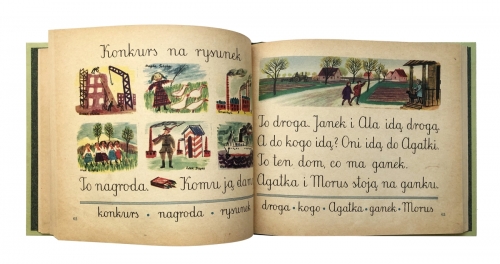 Konkurs na rysunek
To nagroda. Komu ją dam
konkurs • nagroda • rysunek
To droga. Janek i Ala idą drogą.
A do kogo idą? Oni idą do Agatki.
To ten dom, co ma ganek.
Agatka i Morus stoją na ganku.
droga • kogo • Agatka • ganek • Morus